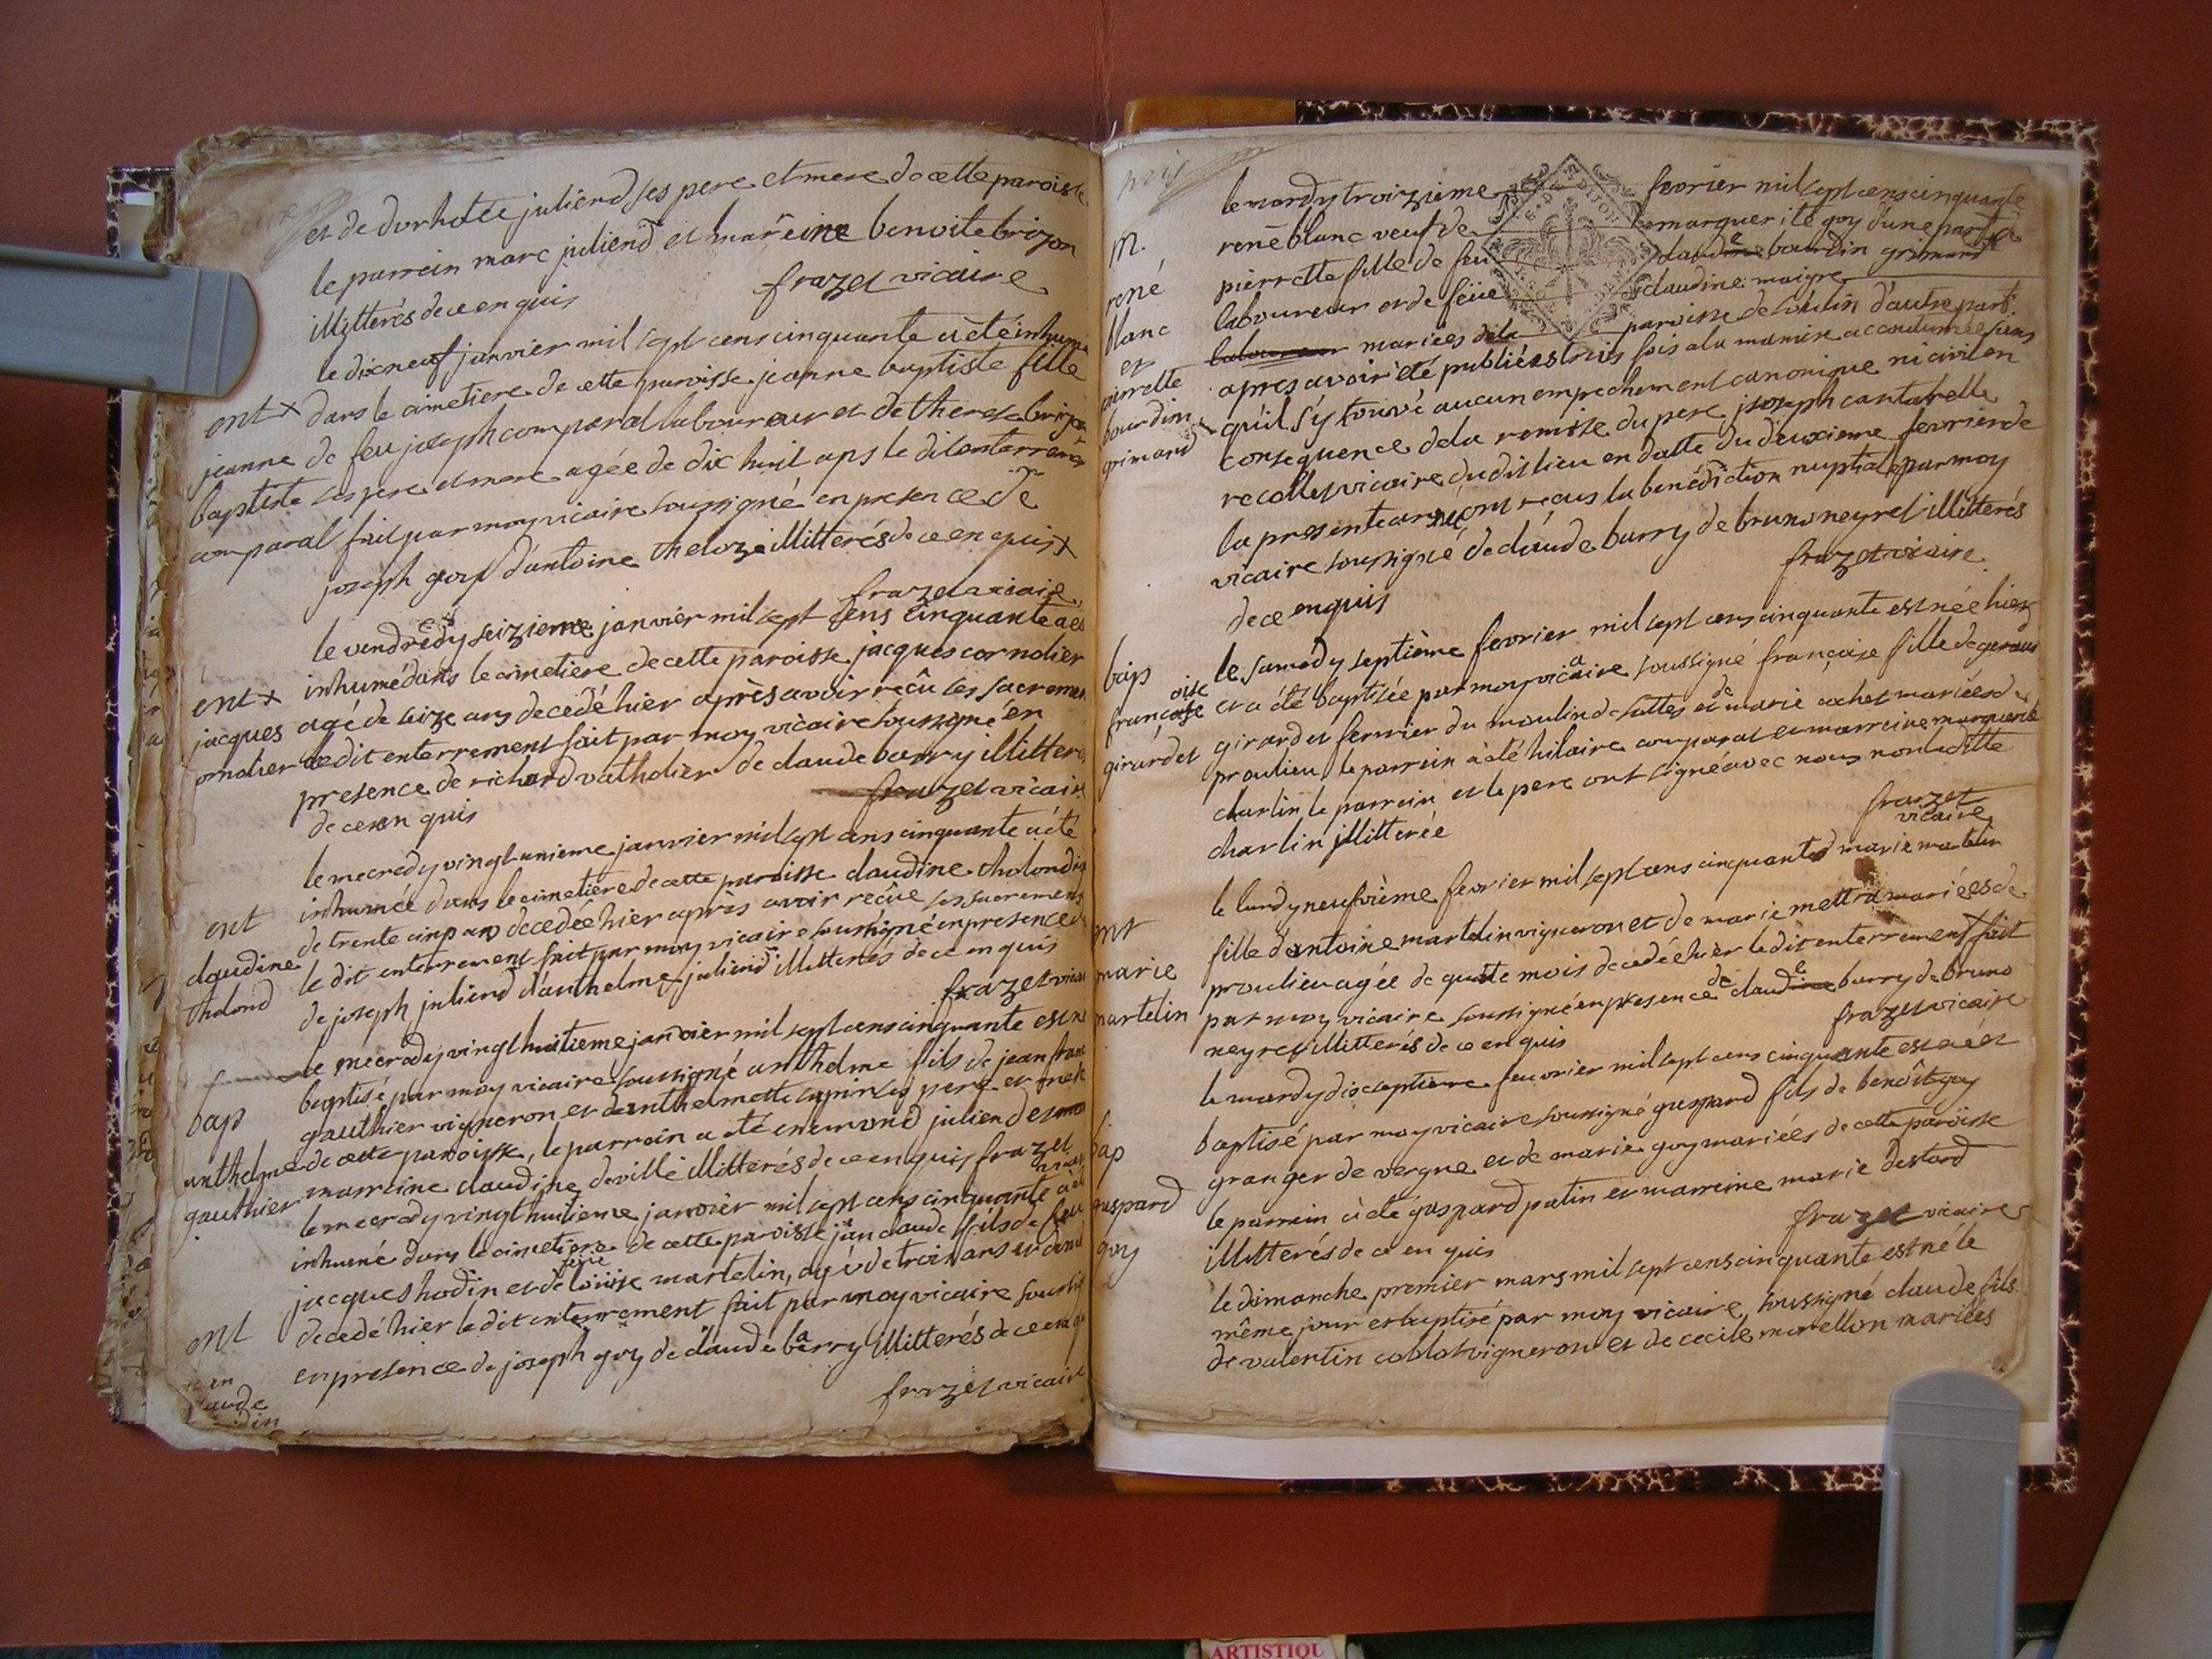 et de dorhotée juliend ses pere et mere de cette paroisse
le parrein marc juliend et mareine benoite brizon
illitterés de ce enquis frazet vicaire
le dix neuf janvier mil sept cens cinquante a été inhumé
ent + dans le cimetiere de cette paroisse jeanne baptiste fille
jeanne de feu joseph comparat laboureur et de therese brizon
baptiste ses pere et mere agée de dix huit ans le dit enterrement
comparat fait par moy vicaire soussigné en presence de
joseph goy d'antoine theloz illitterés de ce enquis +
frazet vicaire
le vendredy seizieme janvier mil sept cens cinquante a été
ent + inhumé dans le cimetiere de cette paroisse jacques cornolier
jacques agé de seize ans decedé hier après avoir reçû ses sacremens
ornolier le dit enterrement fait par moy vicaire soussigné en
presence de richard vathelier de claude barry illitterés
de ce en quis frazet vicaire
le mecredy vingt unieme janvier mil sept cens cinquante a été
ent inhumée dans le cimetiere de cette paroisse claudine tholond
claudine de trente cinp ans decedée hier après avoir reçûe ses sacremens
tholond le dit enterrement fait par moy vicaire soussigné en presence
de joseph juliend d'anthelme juliend illitterés de ce en quis
frazet vicaire
le mecredy vingt huitieme janvier mil sept cens cinquante est né
bap baptisé par moy vicaire soussigné anthelme fils de jean franc
gauthier vigneron et d'anthelmette ses pere et mere
anthelme de cette paroisse, le parrein a été enemond juliend et
gauthier marreine claudine deville illitterés de ce en quis frazet vicaire
le mecredy vingt huitieme janvier mil sept cens cinquante a été
inhumé dans le cimetiere de cette paroisse jean claude fils de feu
jacques hodin et de feüe loüise martelin, agé de trois ans et demi
ent decedé hier le dit enterrement fait par moy vicaire soussigné
en presence de joseph goy de claude barry illitterés de ce en
frazet vicaire
le mardy troizieme fevrier mil sept cens cinquante
m. renê blanc veuf de marguerite goy d'une part et
rené pierrette fille de feu claude bourdin grimand
blanc laboureur et de feüe claudine maigre
et laboureur mariées de la paroisse de soulin d'autre part.
pierrette apres avoir été publiées trois fois a la maniere accoutumée sans
bourdin qu'il s'y trouvé aucun emprechement canonique ni civil en
grimand consequence de la remise du pere joseph cantarelle
recollet vicaire dudit lieu en datte du deuxieme fevrier de
la presente année ont reçus la benediction nuptiale par moy
vicaire soussigné de claude barry de bruno neyret illitterés
de ce enquis frazet vicaire
bap le samedy septième fevrier mil sept cens cinquante est née hier
françoise et a été baptisée par moy vicaire soussigné françoise fille de geraud
girardet girardet fermier du moulin de sattes et de marie cochet mariées de
proulieu le parrein à été hilaire comparat et marreine marguerite
charlin le parrein et le pere ont signé avec nous non la ditte
charlin illitterée frazet vicaire
le lundy neufvième fevrier mil sept cens cinquante marie martelin
ent fille d'antoine martelin vigneron et de marie mettra mariées de
marie proulieu agée de quatte mois decedée hier le dit enterrement fait
martelin par moy vicaire soussigné en presence de claude barry de bruno
neyret illitterés de ce en quis frazet vicaire
le mardy dixseptieme feuvrier mil sept cens cinquante est né et
bap baptisé par moy vicaire soussigné gaspard fils de benoît goy
granger de vergne et de marie goy mariées de cette paroisse
gaspard le parrein à été gaspard patin et marreine marie destard
goy illitterés de ce en quis frazet vicaire
le dimanche premier mars mil sept cens cinquante est né le
même jour et baptisé par moy vicaire soussigné claude fils
de valentin coblot vigneron et de cecile morellon mariées
ARTISTIQU